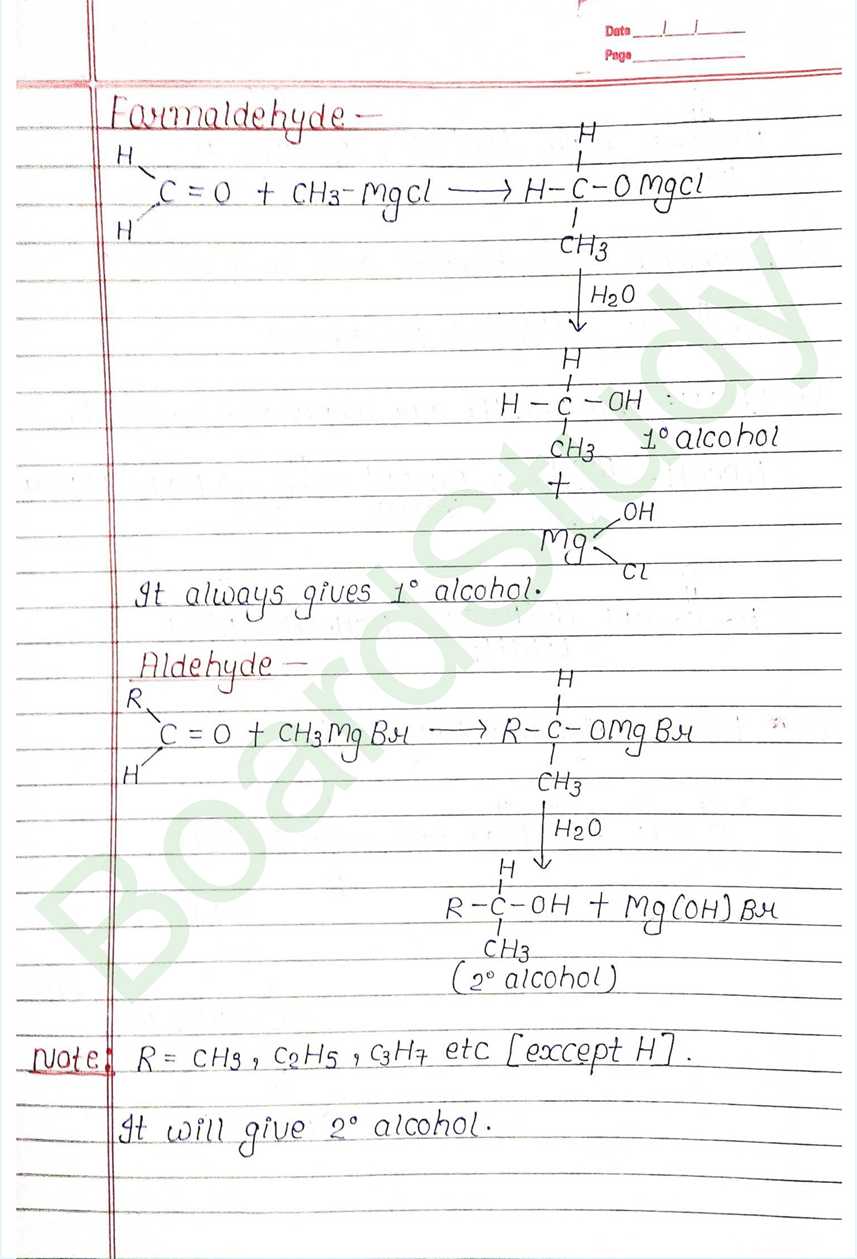 Date / /
Page
Formaldehyde –
H
H
C = O + CH3-MgCl ⟶ H-C-OMgCl
H
CH3
H2O
H
H-C-OH
CH3 1° alcohol
+
Mg
OH
Cl
It always gives 1° alcohol.
Aldehyde –
H
R
C = O + CH3MgBr ⟶ R-C-OMgBr
H
CH3
H2O
H
R-C-OH + Mg(OH)Br
CH3
(2° alcohol)
Note: R = CH3, C2H5, C3H7 etc [except H].
It will give 2° alcohol.
BoardStudy